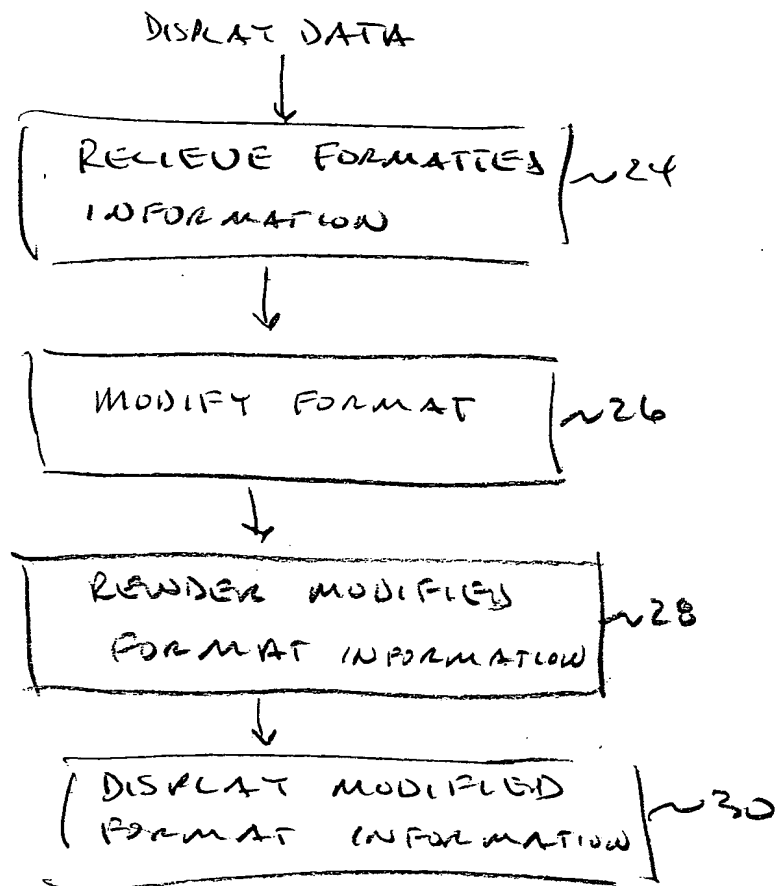 DISPLAY DATA
RECIEVE FORMATTED
INFORMATION
~24
MODIFY FORMAT
~26
RENDER MODIFIED
FORMAT INFORMATION
~28
DISPLAY MODIFIED
FORMAT INFORMATION
~30